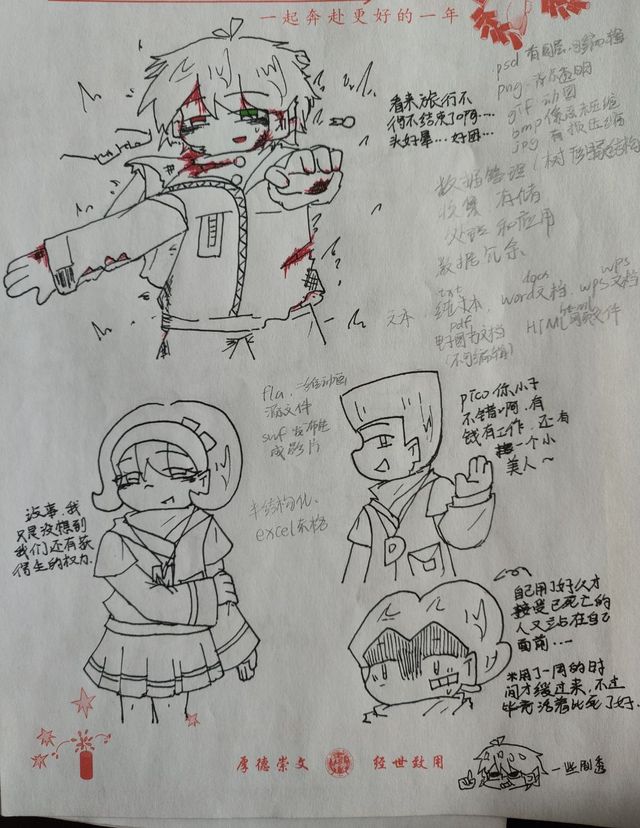 一起奔赴更好的一年
看来旅行不
得不结束了啊...
头好晕...好困...
.psd 有图层.可编辑
png.背景透明
gif 动图
bmp 像质未压缩
jpg 有损压缩
(树形结构
数据管理
收集 存储
处理和应用
数据冗余
txt
文本.纯文本.
docx
word文档.
wps
wps文档
pdf
电子图书文档
(不可编辑)
html
HTML 网页文件
fla.二维动画
源文件
swf 发布生
成影片
半结构化.
excel表格
pico 你小子
不错啊,有
钱有工作,还有
一个小
美人~
没事,我
只是没想到
我们还有获
得生的权力.
自己用了好久才
接受已死亡的
人又站在自己
面前....
※用了一周的时
间才缓过来,不过
毕竟活着比死了好.
厚德崇文 经世致用
一些剧透